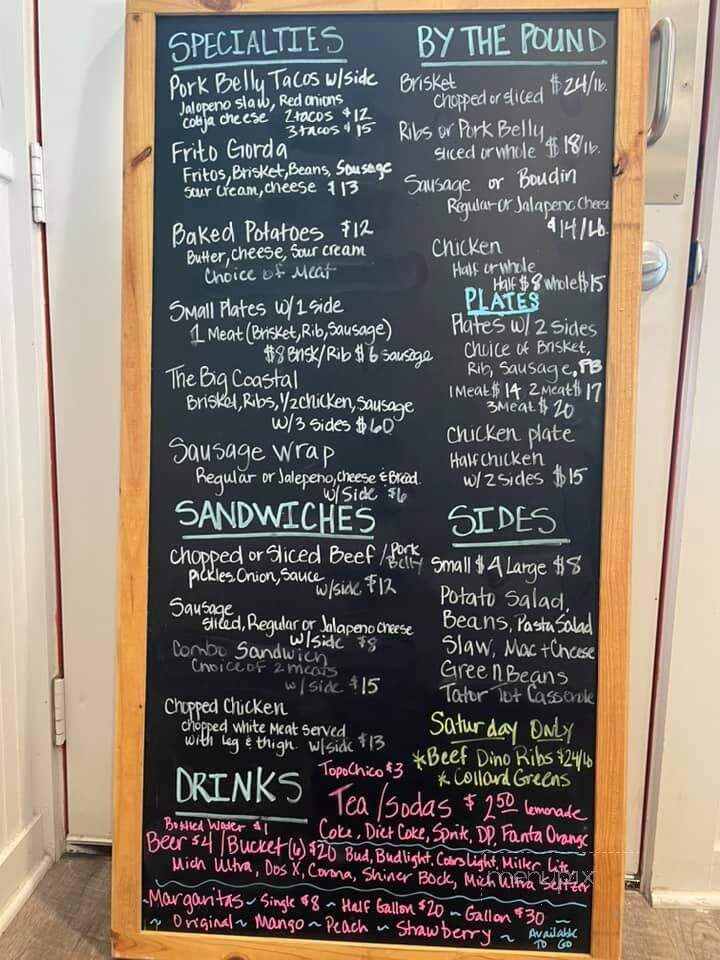 SPECIALTIES
Pork Belly Tacos w/side
Jalapeno slaw, Red onions
cotija cheese 2 tacos $12
3 tacos $15
Frito Gorda
Fritos, Brisket, Beans, Sausage
Sour cream, cheese $13
Baked Potatoes $12
Butter, cheese, Sour cream
Choice of Meat
Small Plates w/1 side
1 Meat (Brisket, Rib, Sausage)
$8 Brisk/Rib $6 sausage
The Big Coastal
Brisket, Ribs, 1/2 chicken, Sausage
w/3 sides $60
Sausage wrap
Regular or Jalepeno, cheese & Bread
w/side $6
SANDWICHES
chopped or sliced Beef / Pork Belly
pickles, Onion, Sauce
w/side $12
Sausage
sliced, Regular or Jalapeno cheese
w/side $8
Combo Sandwich
Choice of 2 meats
w/side $15
Chopped Chicken
chopped white Meat served
with leg & thigh w/side $13
BY THE POUND
Brisket $24/lb.
chopped or sliced
Ribs or Pork Belly
sliced or whole $18/lb.
Sausage or Boudin
Regular or Jalapeno Cheese
$14/Lb.
Chicken
Half or whole
Half $8 whole $15
PLATES
Plates w/2 sides
Choice of Brisket,
Rib, Sausage, PB
1 Meat $14 2 Meat $17
3 Meat $20
Chicken plate
Half chicken
w/2 sides $15
SIDES
Small $4 Large $8
Potato Salad,
Beans, Pasta Salad
Slaw, Mac + Cheese
Green Beans
Tator Tot Casserole
Saturday Only
*Beef Dino Ribs $24/lb
*Collard Greens
DRINKS
TopoChico $3
Tea/Sodas $2.50 lemonade
Bottled Water $1
Coke, Diet Coke, Sprite, DP, Fanta Orange
Beer $4 / Bucket (6) $20 Bud, Budlight, Coors Light, Miller Lite,
Mich Ultra, Dos X, Corona, Shiner Bock, Mich Ultra Seltzer
~Margaritas~ Single $8 ~ Half Gallon $20 ~ Gallon $30 ~
~ Original ~ Mango ~ Peach ~ Strawberry ~ Available
TO GO
menupix